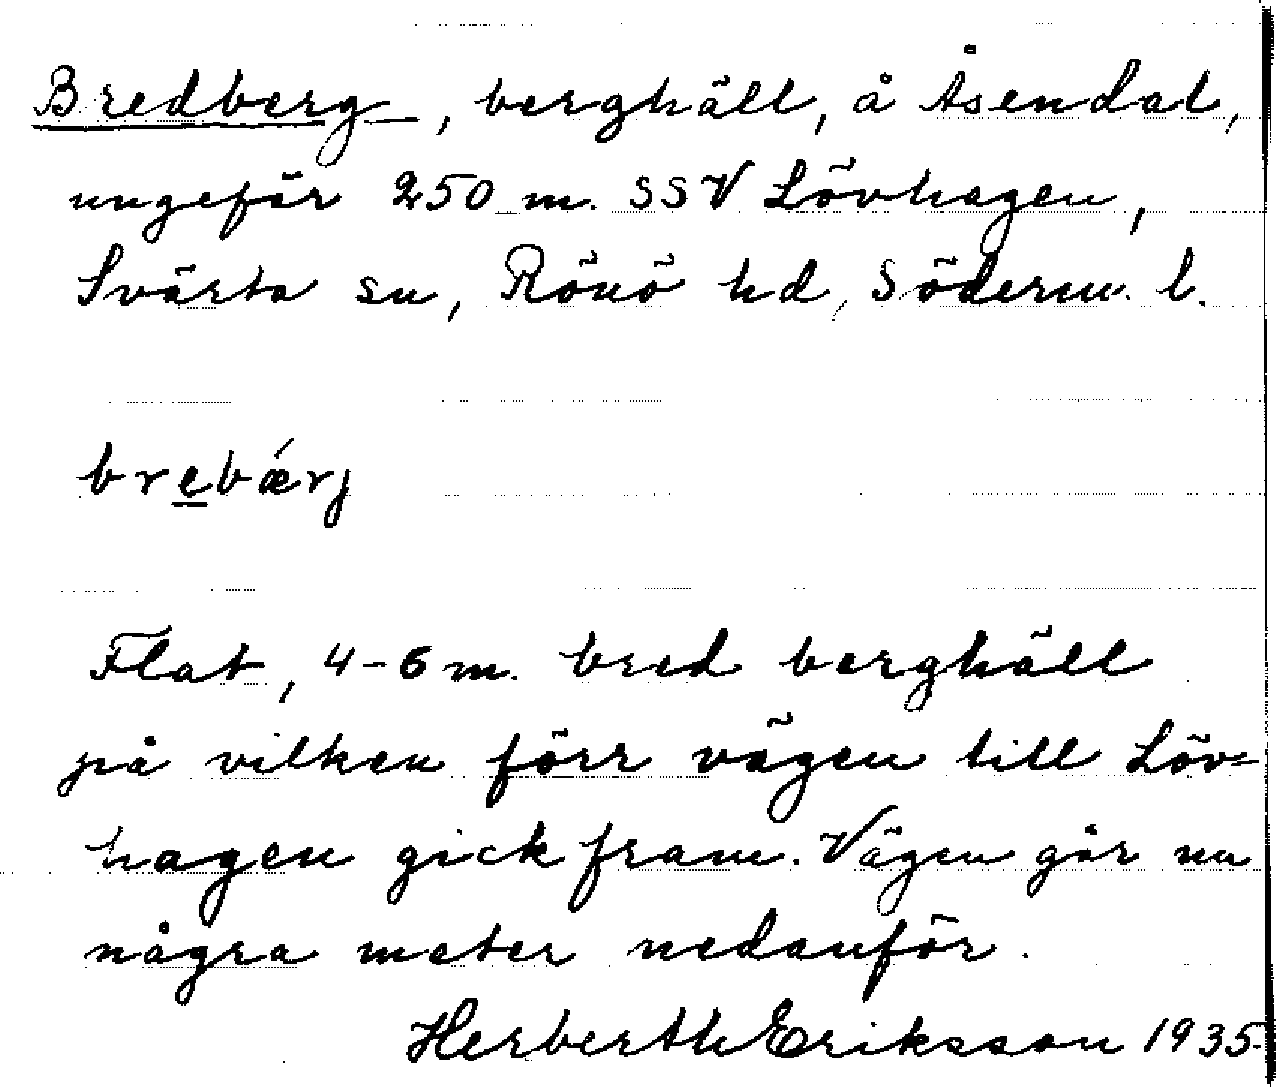 Bredberg, berghäll, å Åsendal,
ungefär 250 m. SSV Lövhagen,
Svärta sn, Rönö hd, Söderm. l.
brebǽrj
Flat, 4-6 m. bred berghäll
på vilken förr vägen till Löv=
hagen gick fram. Vägen går nu
några meter nedanför.
Herberth Eriksson 1935